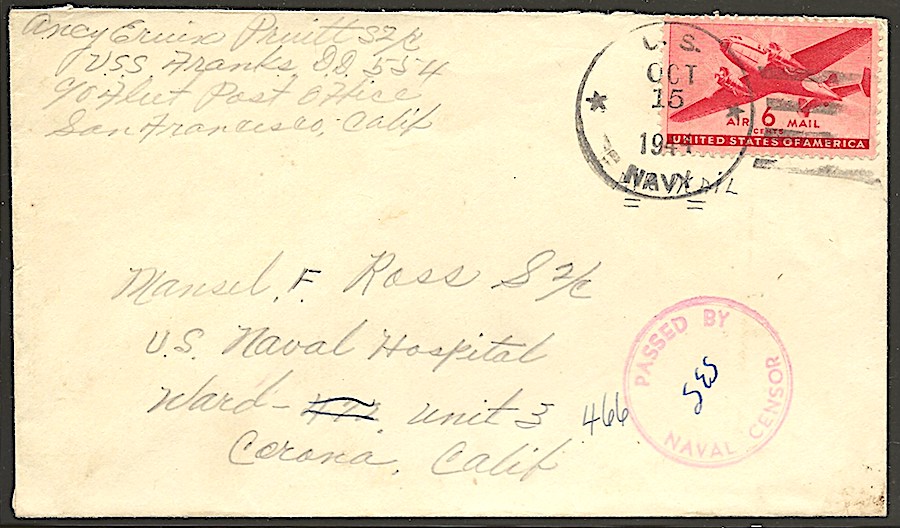 Pruitt S2/c
U.S.S. Franks, D.D. 554
c/o Fleet Post Office
San Francisco, Calif
U.S.
OCT
15
NAVY
AIR 6 MAIL
CENTS
UNITED STATES OF AMERICA
Mansel, F. Ross S2/c
U.S. Naval Hospital
Ward- Unit 3 466
Corona, Calif
PASSED BY
NAVAL CENSOR